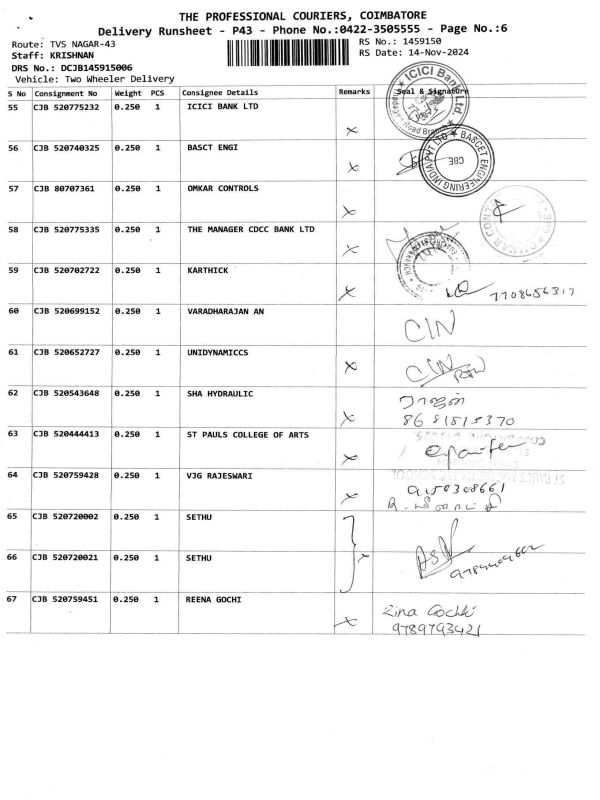 THE PROFESSIONAL COURIERS, COIMBATORE
Delivery Runsheet - P43 - Phone No.:0422-3505555 - Page No.:6
Route: TVS NAGAR-43 RS No.: 1459150
Staff: KRISHNAN RS Date: 14-Nov-2024
DRS No.: DCJB145915006
Vehicle: Two Wheeler Delivery
S No Consignment No Weight PCS Consignee Details Remarks Seal & Signature
ICICI Bank Ltd.
Road Branch
55 CJB 520775232 0.250 1 ICICI BANK LTD x
56 CJB 520740325 0.250 1 BASCT ENGI x
BASCET ENGINEERING INDIA PVT LTD
CBE
57 CJB 80707361 0.250 1 OMKAR CONTROLS x
58 CJB 520775335 0.250 1 THE MANAGER CDCC BANK LTD x
59 CJB 520702722 0.250 1 KARTHICK x 7708656317
60 CJB 520699152 0.250 1 VARADHARAJAN AN CIN
61 CJB 520652727 0.250 1 UNIDYNAMICCS x CIN
62 CJB 520543648 0.250 1 SHA HYDRAULIC x
8681815370
63 CJB 520444413 0.250 1 ST PAULS COLLEGE OF ARTS x
64 CJB 520759428 0.250 1 VJG RAJESWARI x 9150308661
65 CJB 520720002 0.250 1 SETHU
66 CJB 520720021 0.250 1 SETHU x
67 CJB 520759451 0.250 1 REENA GOCHI x Rina Gochhi
9789793421